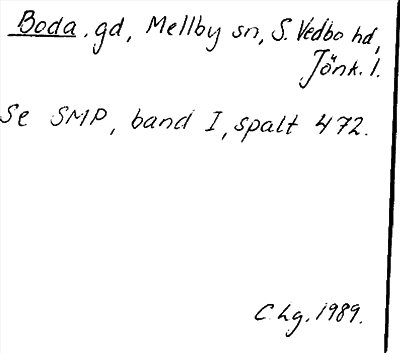 Boda. gd, Mellby sn, S. Vedbo hd,
Jönk. l.
Se SMP, band I, spalt 472.
C. Lg. 1989.